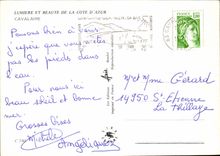 LUMIERE ET BEAUTE DE LA COTE D'AZUR
CAVALAIRE
Pensons bien à vous
J'espère que vous n'êtes
pas les pieds dans
l'eau.
Pour nous ici
beau soleil et bonne
mer.
Grosses bises
Michèle
Angélique
Mr et Mme Gérard
14350 St Etienne
La Thillaye